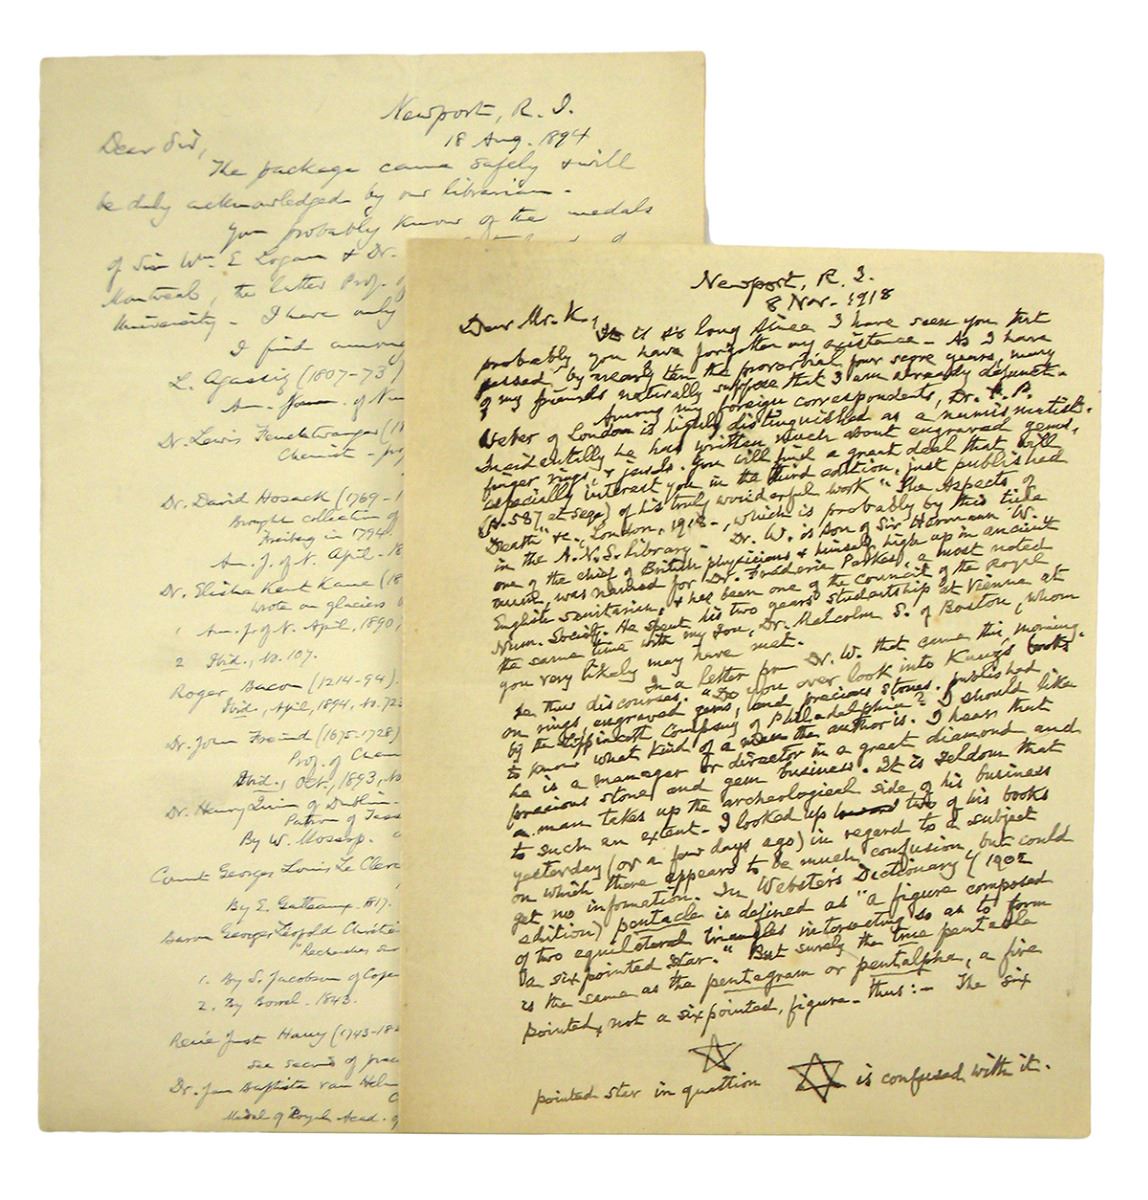 Newport, R. I.
18 Aug. 1894
Dear Sir,
The package came safely & will
be duly acknowledged by our librarian.
You probably know of the medals
of Sir Wm. E Logan & Dr.
Montreal, the latter Prof. of
University. I have only
I find among
L. Agassiz (1807-73)
Am. Journ. of Num
Dr. Lewis Feuchtwanger (18
Chemist
Dr. David Hosack (1769-1
Brought collection of
Freiberg in 1794.
Am. J. of N. April. 18
Dr. Elisha Kent Kane (18
wrote on glaciers
1 Am. J. of N. April, 1890,
2 Ibid., No. 107.
Roger Bacon (1214-94).
Ibid., April, 1894, No. 722
Dr. John Freind (1675-1728)
Prof. of Chem
Ibid., Oct., 1893, No
Dr. Henry Quin of Dublin.
Patron of Tass
By W. Mossop.
Count Georges Louis Le Clerc
By E. Gatteaux. 1817.
Baron Georges Leopold Chretie
"Recherches sur
1. By S. Jacobson of Cope
2. By Bovel. 1843.
René Just Hauy (1743-182
See second of prec
Dr. Jan Baptista van Helm
Medal of Royal Acad. of
Newport, R. I.
8 Nov. 1918
Dear Mr. K.,
It is so long since I have seen you that
probably you have forgotten my existence. As I have
passed by nearly ten the proverbial four score years, many
of my friends naturally suppose that I am already defunct.
Among my foreign correspondents, Dr. F. P.
Weber of London is highly distinguished as a numismatist.
Incidentally he has written much about engraved gems,
finger rings, & jewels. You will find a great deal that will
especially interest you in the third edition, just published
(p. 587 et seqq) of his truly wonderful work "The Aspects of
Death" &c., London, 1918, which is probably by this time
in the A.N.S. library. Dr. W. is son of Sir Hermann W.
one of the chief of British physicians & himself high up in ancient
numis, was named for Dr. Frederic Parkes, a most noted
English sanitarian, & has been one of the council of the Royal
Num. Society. He spent his two years studentship at Vienna at
the same time with my son, Dr. Malcolm S. of Boston, whom
you very likely may have met.
In a letter from Dr. W. that came this morning.
he thus discourses. "Do you ever look into Kunz's books
on rings, engraved gems, and precious stones, published
by the Lippincott Company of Philadelphia? I should like
to know what kind of a man the author is. I hear that
he is a manager or director in a great diamond and
precious stone and gem business. It is seldom that
a man takes up the archeological side of his business
to such an extent. I looked up two of his books
yesterday (or a few days ago) in regard to a subject
on which there appears to be much confusion, but could
get no information. In Webster's Dictionary (1902
edition) pentacle is defined as "a figure composed
of two equilateral triangles intersecting so as to form
a six pointed star." But surely the true pentacle
is the same as the pentagram or pentalpha, a five
pointed, not a six pointed, figure. Thus:- The six
pointed star in question is confused with it.